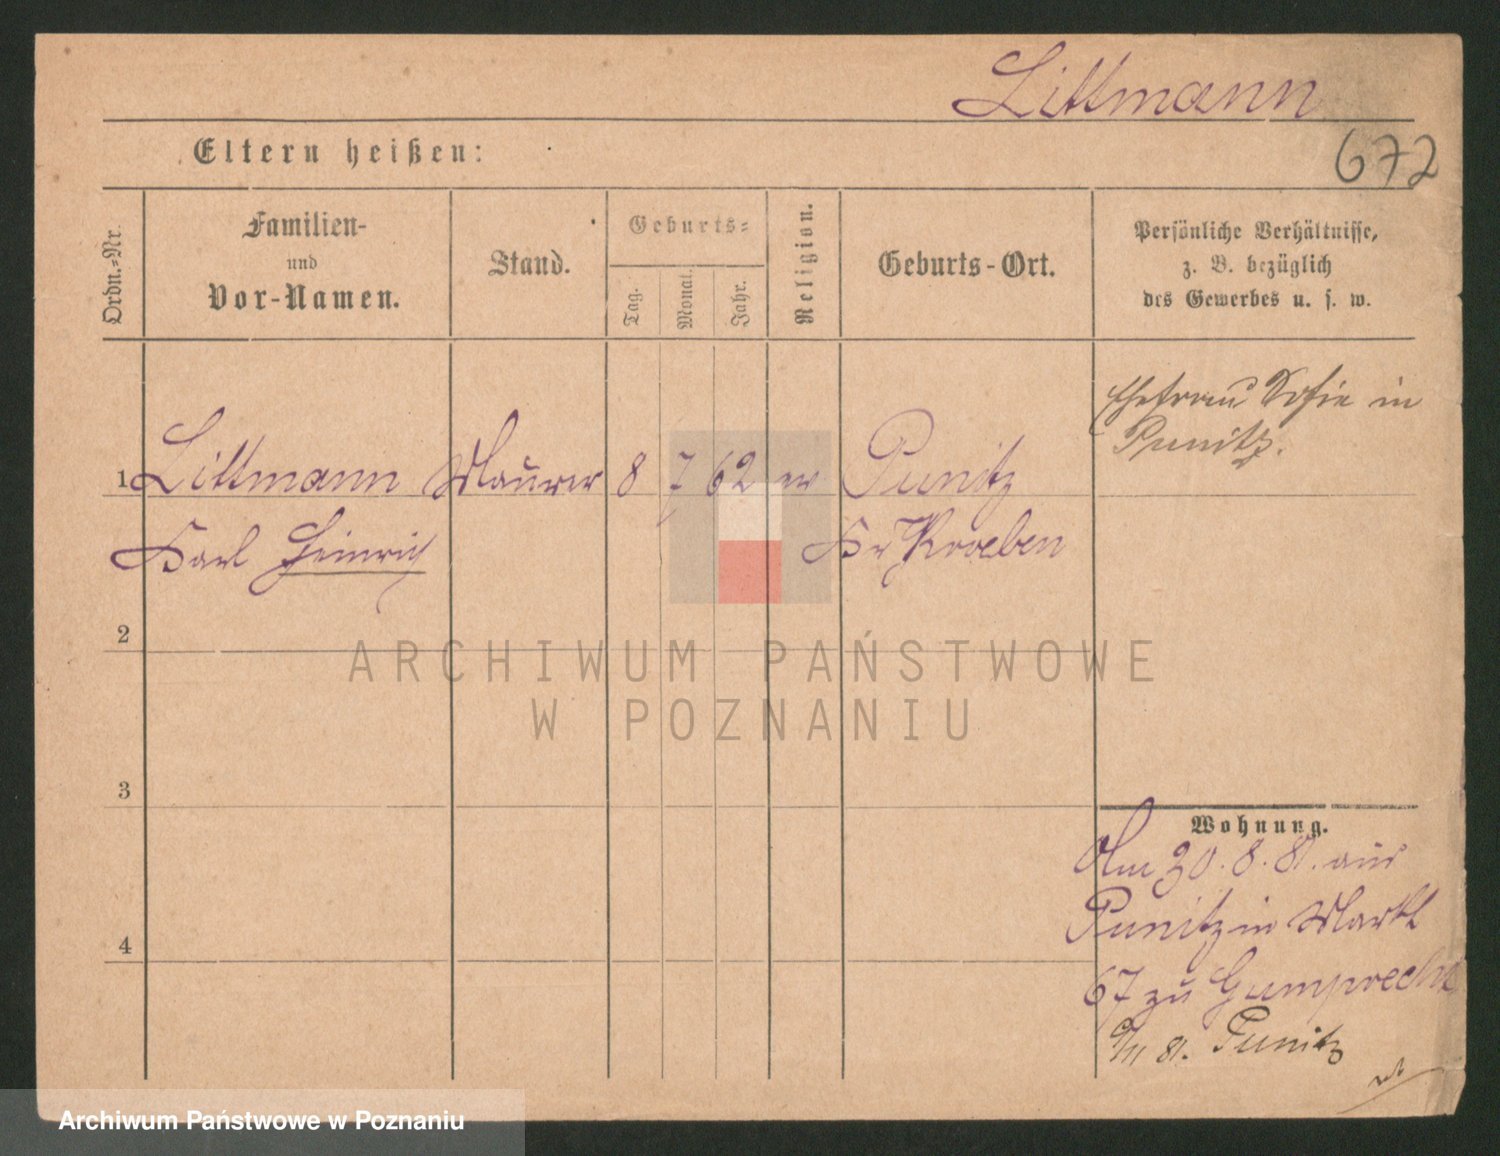 Littmann
672
Eltern heißen:
Ordn.-Nr.
Familien-
und
Vor-Namen.
Stand.
Geburts-
Tag.
Monat.
Jahr.
Religion.
Geburts-Ort.
Persönliche Verhältnisse,
z. B. bezüglich
des Gewerbes u. s. w.
Ehefrau Sofie in
Punitz.
1 Littmann Maurer 8 7 62 ev Punitz
Karl Heinrich Kr Kroeben
2
ARCHIWUM PAŃSTWOWE
W POZNANIU
3
Wohnung.
Am 30. 8. 81. aus
Punitz in Markt
4
67 zu Gumprecht
/11 81. Punitz
Archiwum Państwowe w Poznaniu